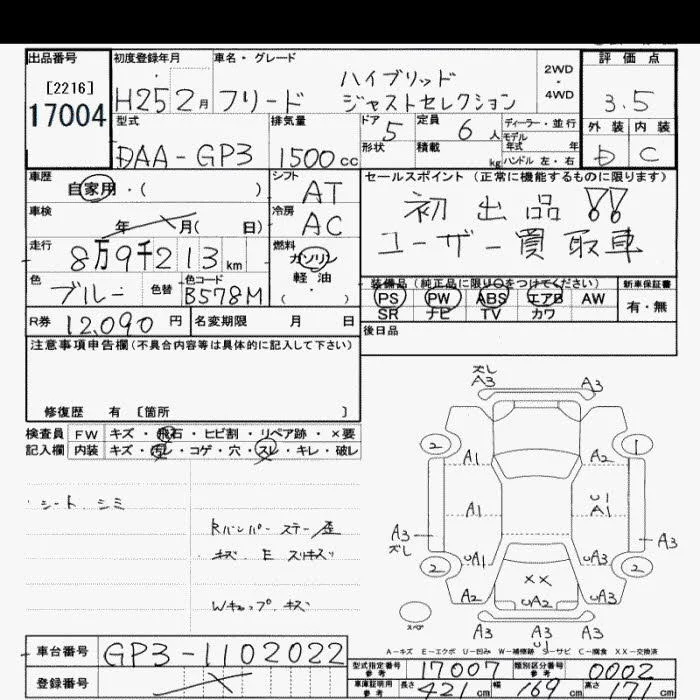 出品番号
[2216]
17004
初度登録年月
H25 2月
車名・グレード
フリード ハイブリッド
ジャストセレクション
2WD
・
4WD
評価点
3.5
外装 内装
D C
型式
DAA-GP3
排気量
1500cc
ドア 5
形状
定員 6人
積載 kg
ディーラー・並行
モデル
年式 年
ハンドル 左・右
車歴
自家用・( )
シフト
AT
セールスポイント (正常に機能するものに限ります)
初出品!!
ユーザー買取車
車検
年 月( 日)
冷房
AC
走行
8万9千213km
燃料
ガソリン
軽油
( ・ )
色
ブルー
色替
色コード
B578M
装備品(純正品に限り○をつけてください)
新車保証書
PS PW ABS エアB AW
SR ナビ TV カワ
有・無
R券 12,090円
名変期限 月 日
後日品
注意事項申告欄(不具合内容等は具体的に記入して下さい)
修復歴 有 [箇所 ]
検査員 FW キズ・飛石・ヒビ割・リペア跡・×要
記入欄 内装 キズ・汚レ・コゲ・穴・スレ・キレ・破レ
・シート シミ
Rバンパー ステー歪
キズ E スリキズ
Wキャップ キズ
ズレ
A3
A3
2
1
A1
A2
A1
U1
A1
A3
ズレ
A3
2
UA1
UA3
2
XX
A2
UA2
A3
スペア
A3
A3
U1
A3
A-キズ E-エクボ U-凹み W-補修跡 S-サビ C-腐食 XX-交換済
車台番号 GP3-1102022
登録番号
型式指定番号
参考
17007
類別区分番号
参考
0002
車庫証明用
参考
長さ 421cm 幅 169cm 高さ 171cm